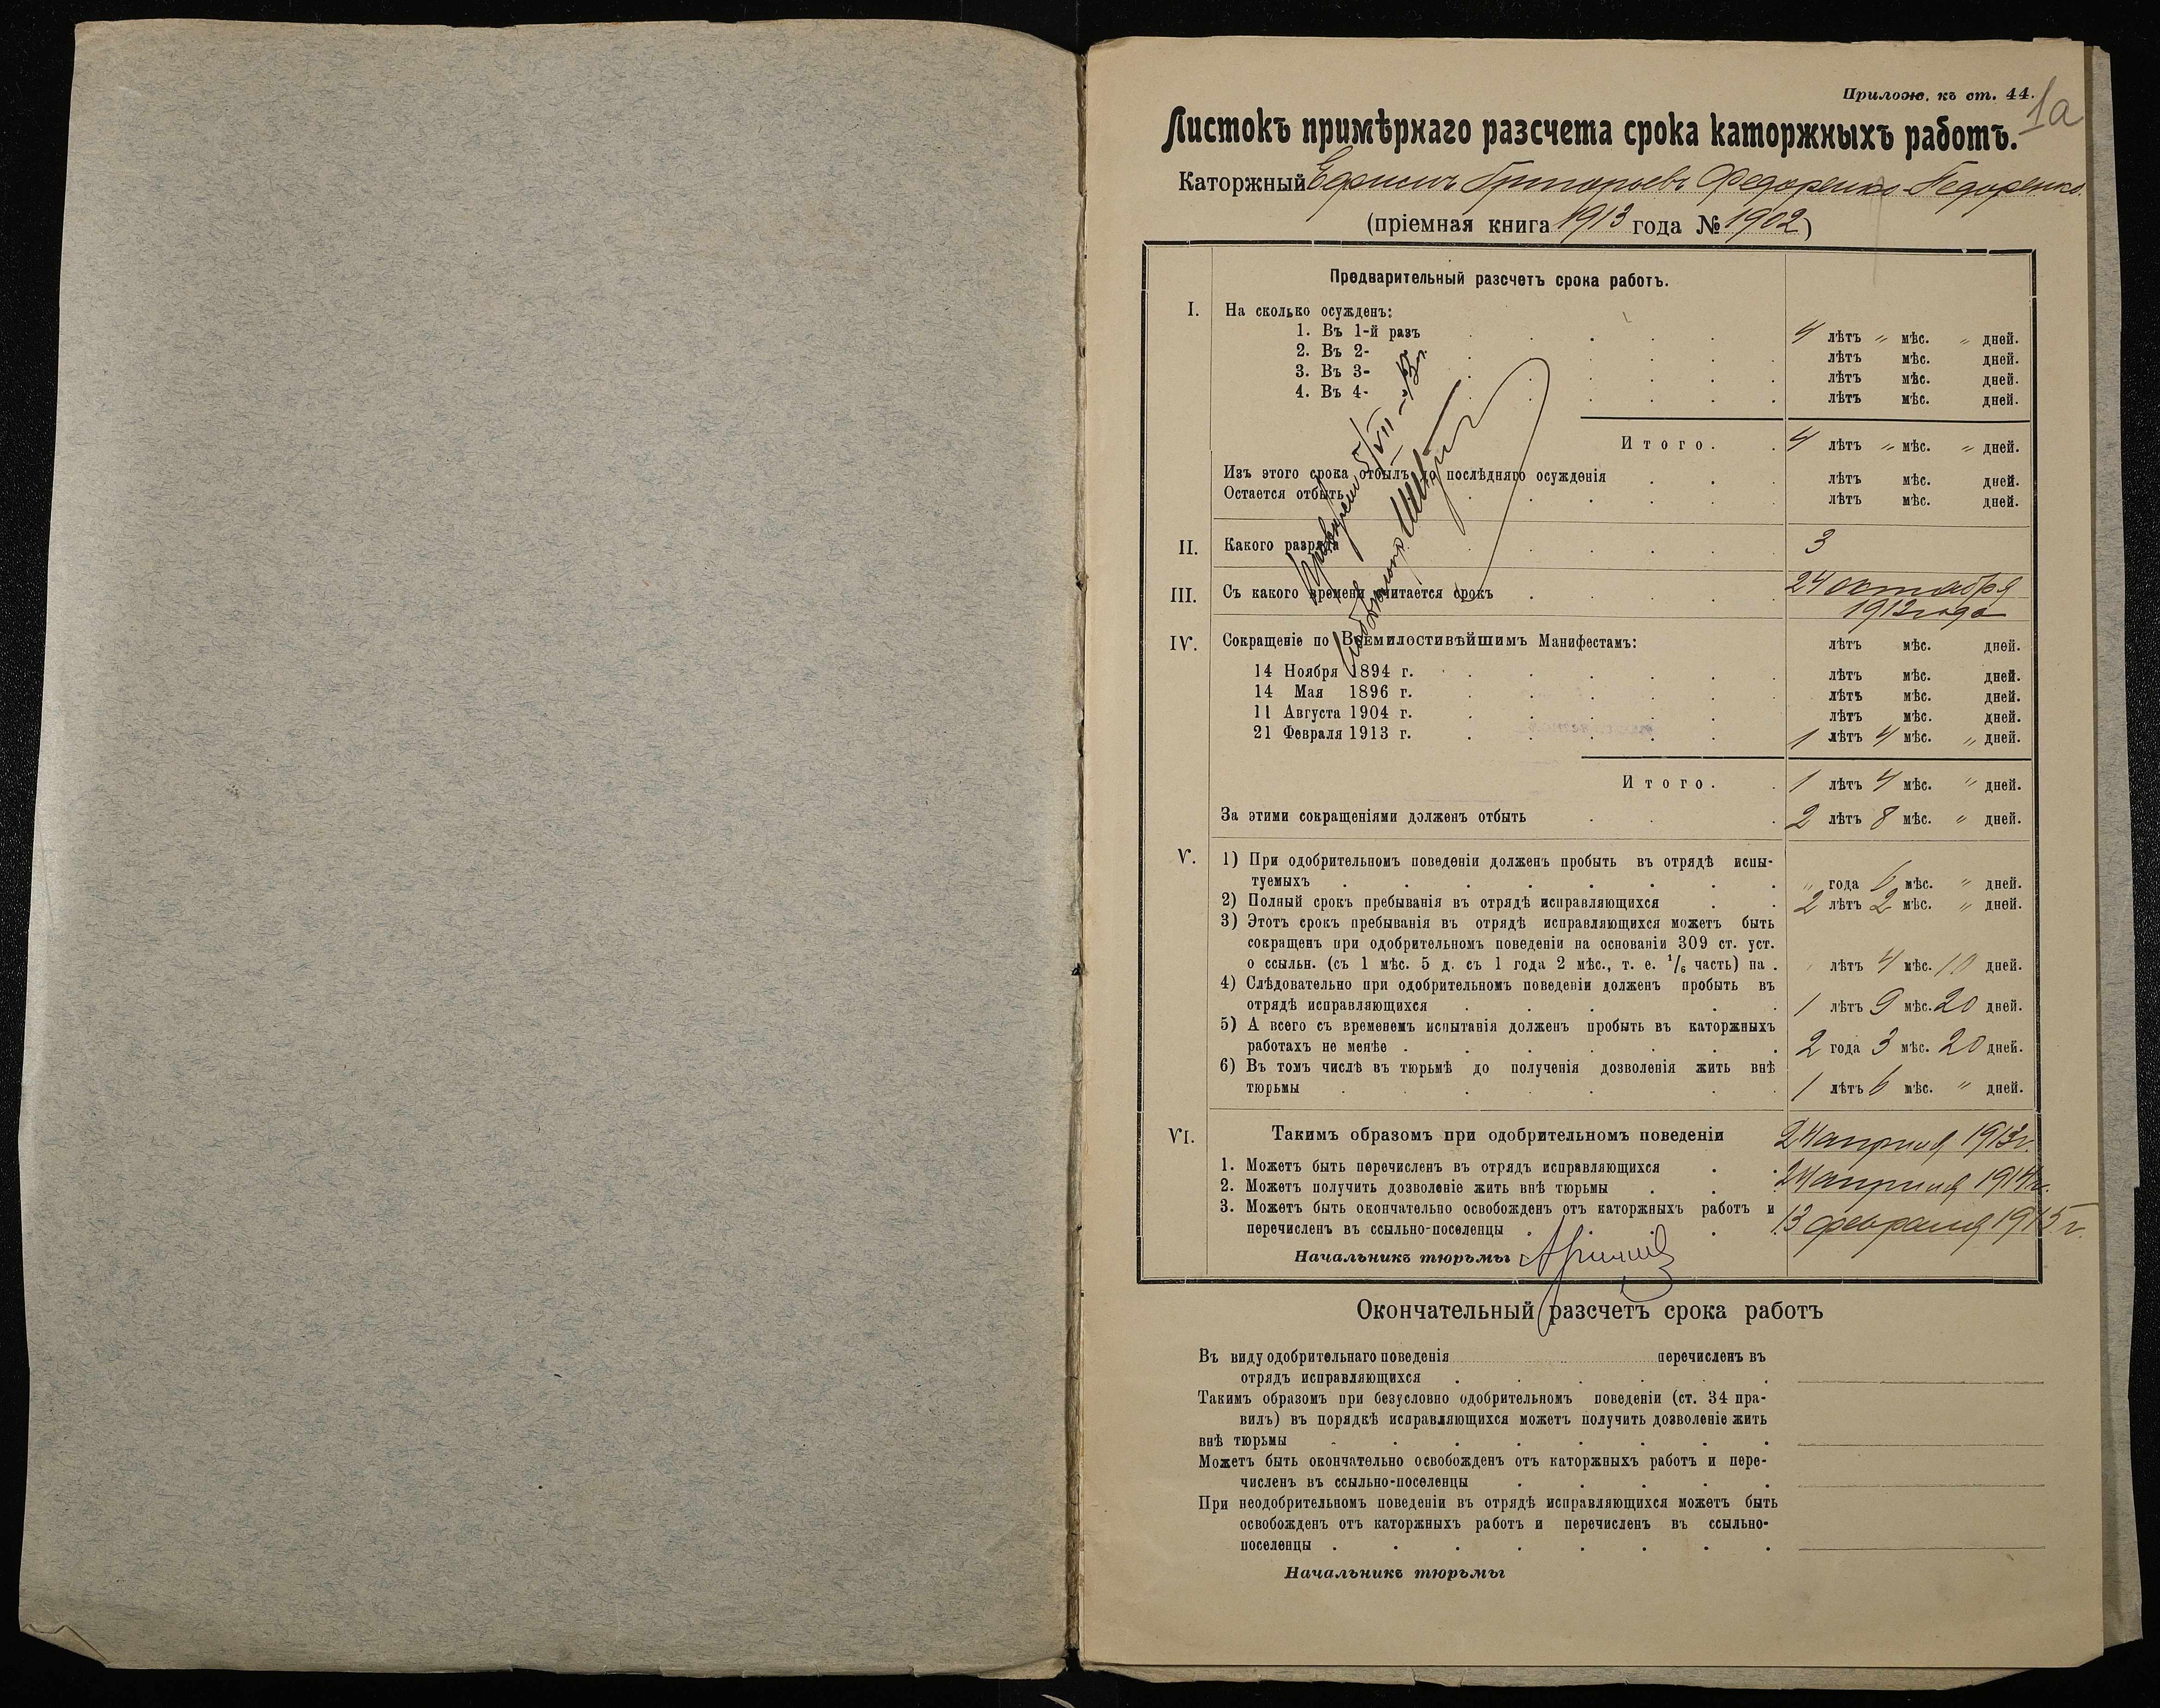 Прилож. къ ст. 44.
1а
Листокъ примѣрнаго разсчета срока каторжныхъ работъ.
Каторжный Ефимъ Григорьевъ Федоренко-Педоренко
(пріемная книга 1913 года № 1902)
Предварительный разсчетъ срока работъ.
I. На сколько осужденъ:
1. Въ 1-й разъ 4 лѣтъ " мѣс. " дней.
2. Въ 2- лѣтъ мѣс. дней.
3. Въ 3- лѣтъ мѣс. дней.
4. Въ 4- лѣтъ мѣс. дней.
Итого. 4 лѣтъ " мѣс. " дней.
Изъ этого срока отбылъ до послѣдняго осужденія лѣтъ мѣс. дней.
Остается отбыть лѣтъ мѣс. дней.
II. Какого разряда 3
III. Съ какого времени считается срокъ 24 октября
1912 года
IV. Сокращеніе по Всемилостивѣйшимъ Манифестамъ: лѣтъ мѣс. дней.
14 Ноября 1894 г. лѣтъ мѣс. дней.
14 Мая 1896 г. лѣтъ мѣс. дней.
11 Августа 1904 г. лѣтъ мѣс. дней.
21 Февраля 1913 г. 1 лѣтъ 4 мѣс. " дней.
Итого. 1 лѣтъ 4 мѣс. " дней.
За этими сокращеніями долженъ отбыть 2 лѣтъ 8 мѣс. " дней.
V. 1) При одобрительномъ поведеніи долженъ пробыть въ отрядѣ испы-
туемыхъ " года 6 мѣс. " дней.
2) Полный срокъ пребыванія въ отрядѣ исправляющихся 2 лѣтъ 2 мѣс. " дней.
3) Этотъ срокъ пребыванія въ отрядѣ исправляющихся можетъ быть
сокращенъ при одобрительномъ поведеніи на основаніи 309 ст. уст.
о ссыльн. (съ 1 мѣс. 5 д. съ 1 года 2 мѣс., т. е. 1/6 часть) на . лѣтъ 4 мѣс. 10 дней.
4) Слѣдовательно при одобрительномъ поведеніи долженъ пробыть въ
отрядѣ исправляющихся 1 лѣтъ 9 мѣс. 20 дней.
5) А всего съ временемъ испытанія долженъ пробыть въ каторжныхъ
работахъ не менѣе . 2 года 3 мѣс. 20 дней.
6) Въ томъ числѣ въ тюрьмѣ до полученія дозволенія жить внѣ
тюрьмы 1 лѣтъ 6 мѣс. " дней.
VI. Такимъ образомъ при одобрительномъ поведеніи
1. Можетъ быть перечисленъ въ отрядъ исправляющихся 24 апрѣля 1913 г.
2. Можетъ получить дозволеніе жить внѣ тюрьмы 24 апрѣля 1914 г.
3. Можетъ быть окончательно освобожденъ отъ каторжныхъ работъ и
перечисленъ въ ссыльно-поселенцы 13 февраля 1915 г.
Начальникъ тюрьмы
Окончательный разсчетъ срока работъ
Въ виду одобрительнаго поведенія перечисленъ въ
отрядъ исправляющихся
Такимъ образомъ при безусловно одобрительномъ поведеніи (ст. 34 пра-
вилъ) въ порядкѣ исправляющихся можетъ получить дозволеніе жить
внѣ тюрьмы
Можетъ быть окончательно освобожденъ отъ каторжныхъ работъ и пере-
численъ въ ссыльно-поселенцы
При неодобрительномъ поведеніи въ отрядѣ исправляющихся можетъ быть
освобожденъ отъ каторжныхъ работъ и перечисленъ въ ссыльно-
поселенцы
Начальникъ тюрьмы